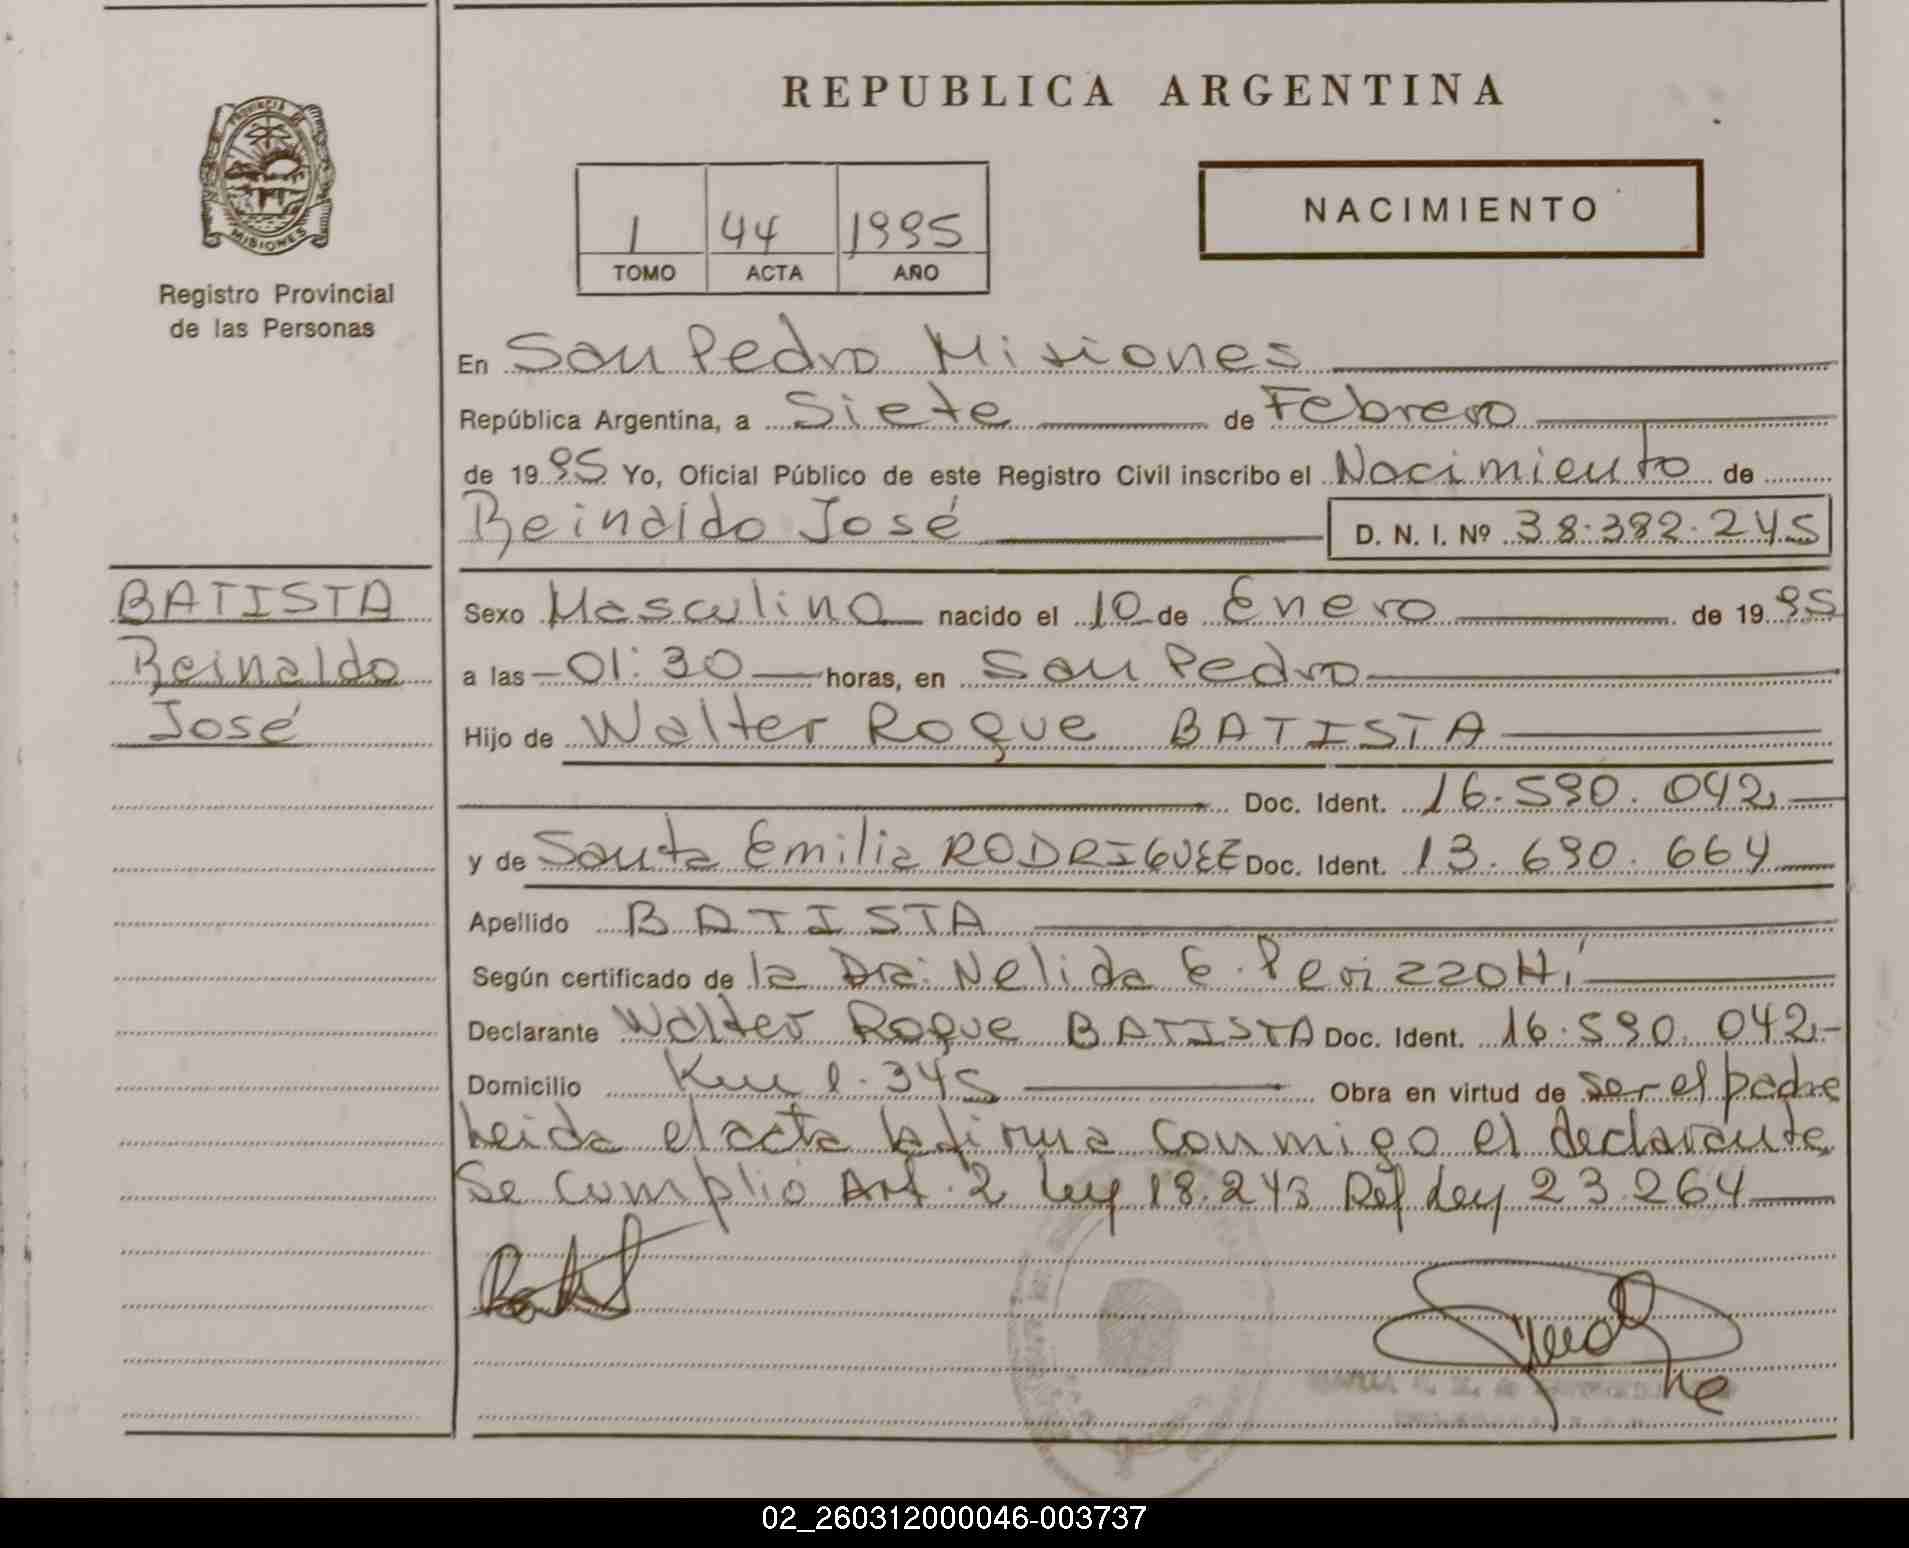 REPUBLICA ARGENTINA
PROVINCIA DE
MISIONES
Registro Provincial
de las Personas
1 44 1995
TOMO ACTA AÑO
NACIMIENTO
En San Pedro Misiones
República Argentina, a Siete de Febrero
de 1995 Yo, Oficial Público de este Registro Civil inscribo el Nacimiento de
Reinaldo José D. N. I. Nº 38.382.245
BATISTA
Reinaldo
José
Sexo Masculino nacido el 10 de Enero de 1995
a las 01:30 horas, en San Pedro
Hijo de Walter Roque BATISTA
Doc. Ident. 16.590.042
y de Santa Emilia RODRIGUEZ Doc. Ident. 13.690.664
Apellido BATISTA
Según certificado de la Dra: Nelida E.
Declarante Walter Roque BATISTA Doc. Ident. 16.590.042-
Domicilio Km 1.345 Obra en virtud de ser el padre
Leida el acta la firma conmigo el declarante
Se cumplió Art. 2 Ley 18.243 Ref Ley 23.264
02_260312000046-003737